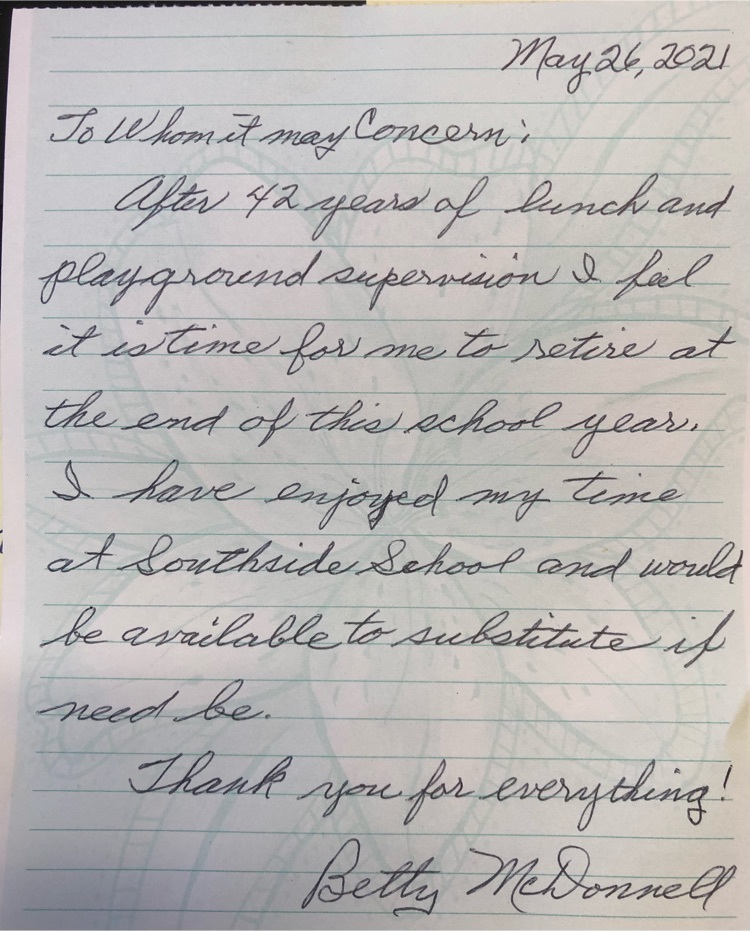 May 26, 2021
To Whom it may Concern:
After 42 years of lunch and
playground supervision I feel
it is time for me to retire at
the end of this school year.
I have enjoyed my time
at Southside School and would
be available to substitute if
need be.
Thank you for everything!
Betty McDonnell